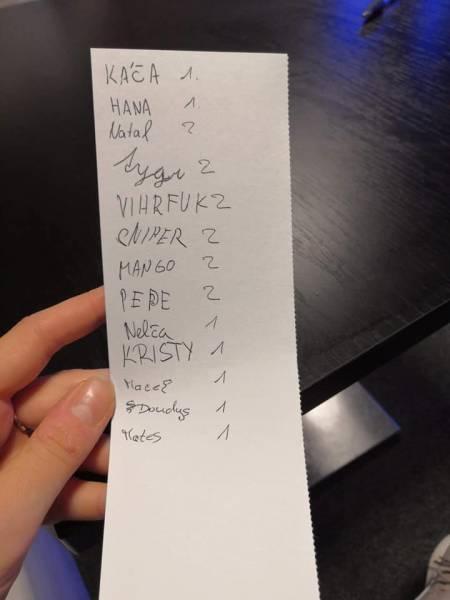 KÁČA 1.
HANA 1.
Natal 2
Tygr 2
VIHRFUK 2
SNIPER 2
MANGO 2
PEPE 2
Nelča 1
KRISTY 1
1
Doudys 1
Mates 1